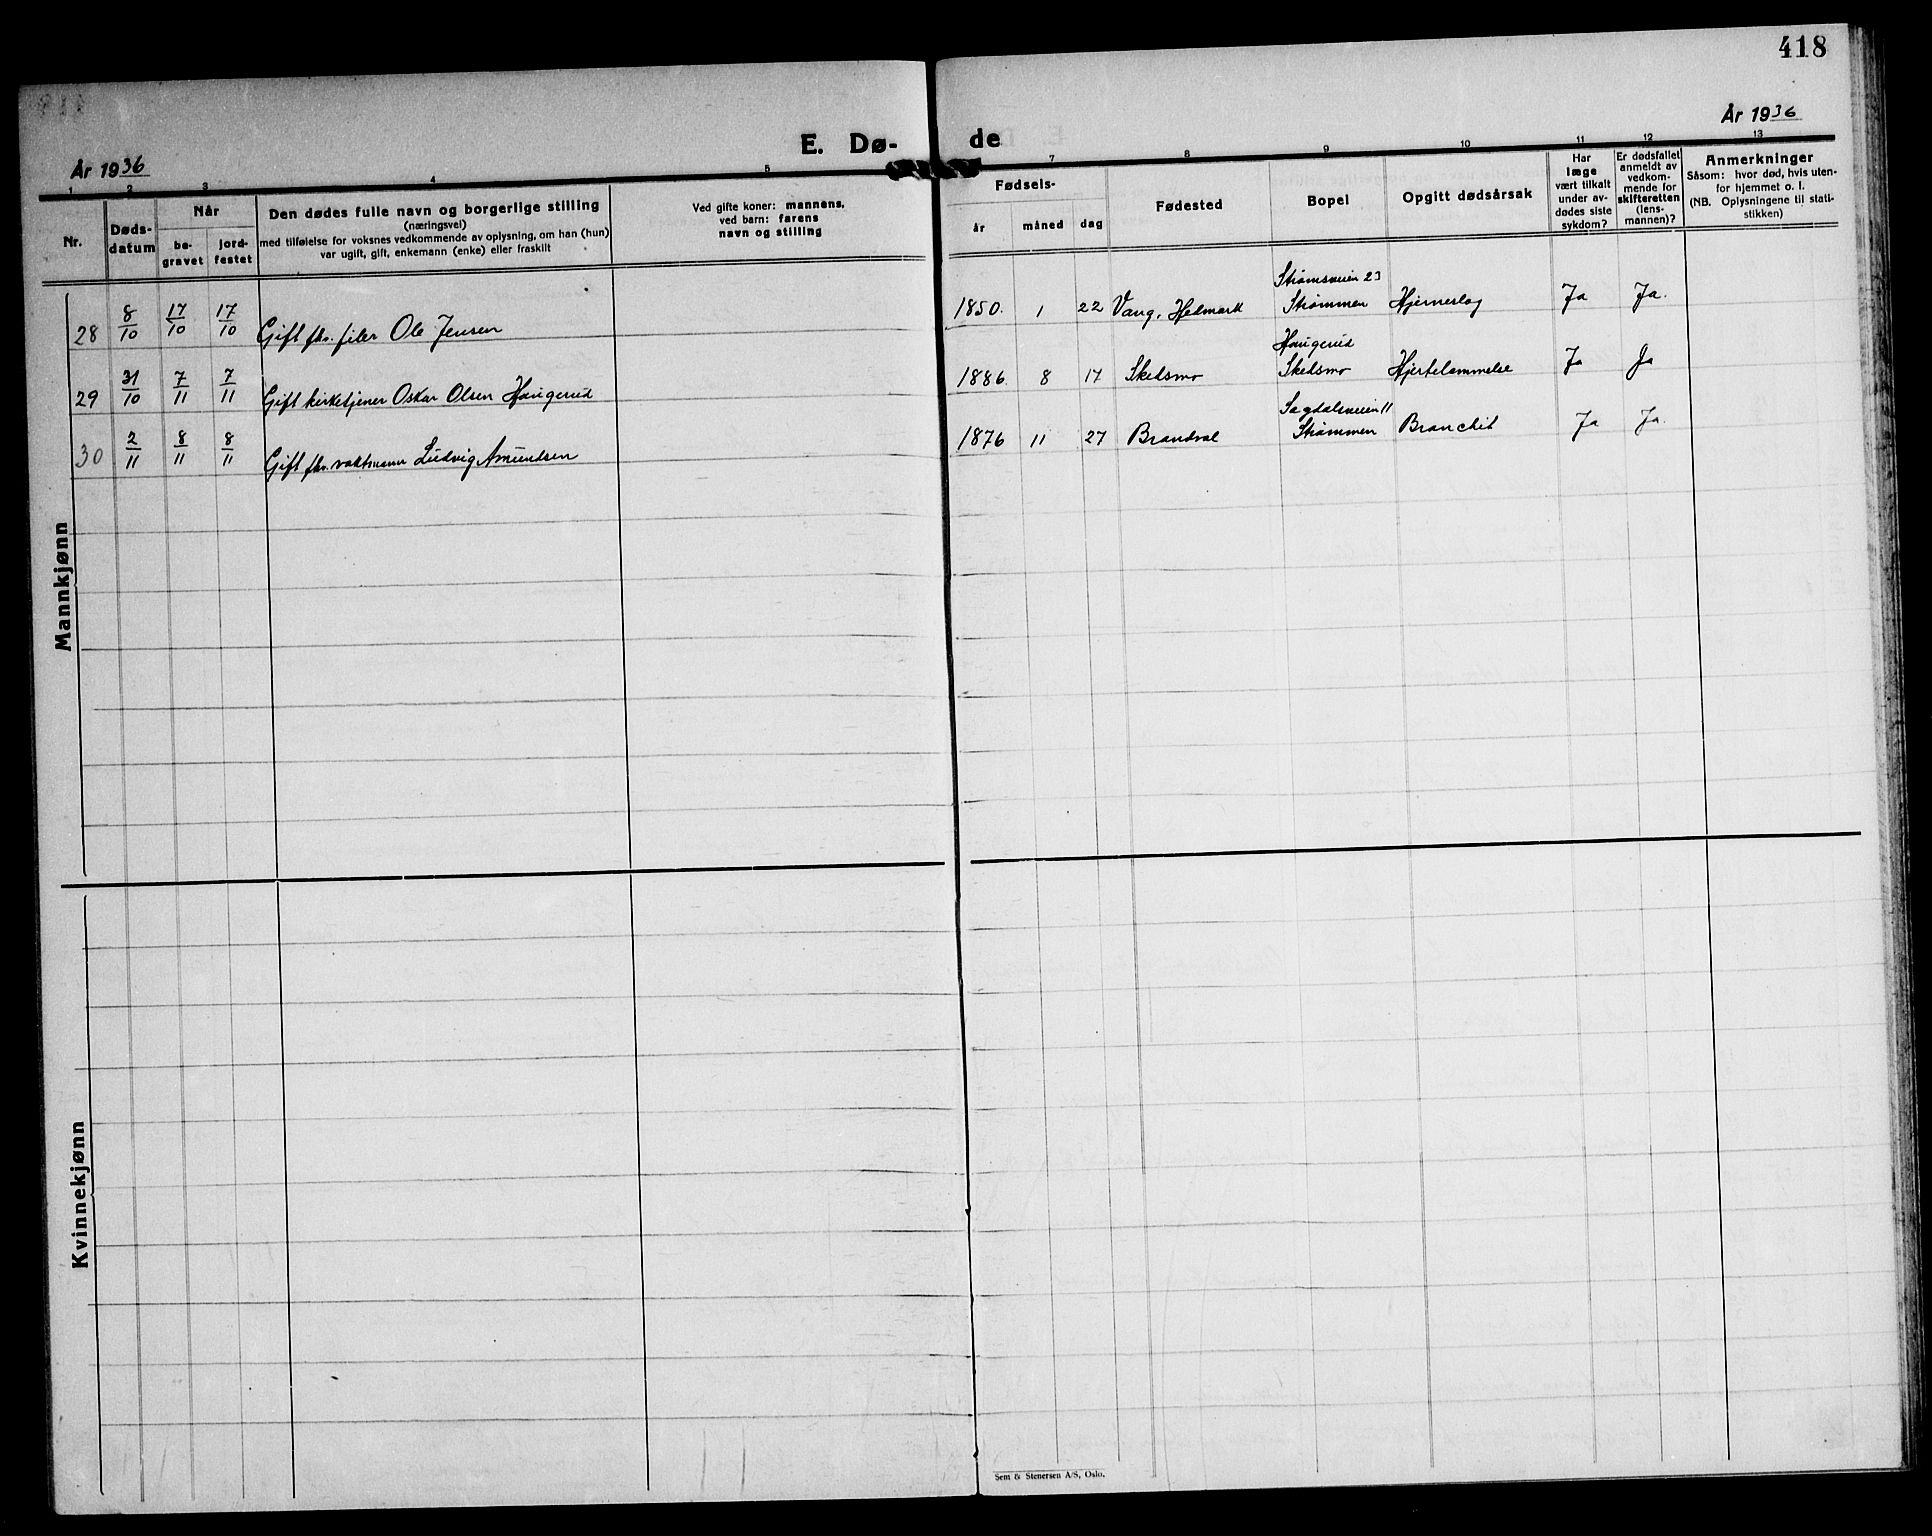 418
År 1936
År 1936
E. Dø-
de
1 2 3 4 5
7 8 9 10 11 12 13
Nr.
Døds-
datum
Når
be-
gravet
jord-
festet
Den dødes fulle navn og borgerlige stilling
(næringsvei)
med tilføielse for voksnes vedkommende av oplysning, om han (hun)
var ugift, gift, enkemann (enke) eller fraskilt
Ved gifte koner: mannens,
ved barn: farens
navn og stilling
Fødsels-
år måned dag
Fødested
Bopel
Opgitt dødsårsak
Har
læge
vært tilkalt
under av-
dødes siste
sykdom?
Er dødsfallet
anmeldt av
vedkom-
mende for
skifteretten
(lens-
mannen)?
Anmerkninger
Såsom: hvor død, hvis uten-
for hjemmet o. l.
(NB. Oplysningene til stati-
stikken)
Mannkjønn
28 8/10 17/10 17/10 Gift fhv. filer Ole Jensen 1850. 1 22 Vang, Hedmark Strømsveien 23
Strømmen Hjerneslag Ja Ja.
29 31/10 7/11 7/11 Gift kirketjener Oskar Olsen Haugerud 1886. 8 17 Skedsmo Haugerud
Skedsmo Hjertelammelse Ja Ja
30 2/11 8/11 8/11 Gift fhv. vaktmann Ludvig Amundsen 1876 11 27 Brandval Sagdalsveien 11
Strømmen Bronchit Ja Ja.
Kvinnekjønn
Sem & Stenersen A/S, Oslo.